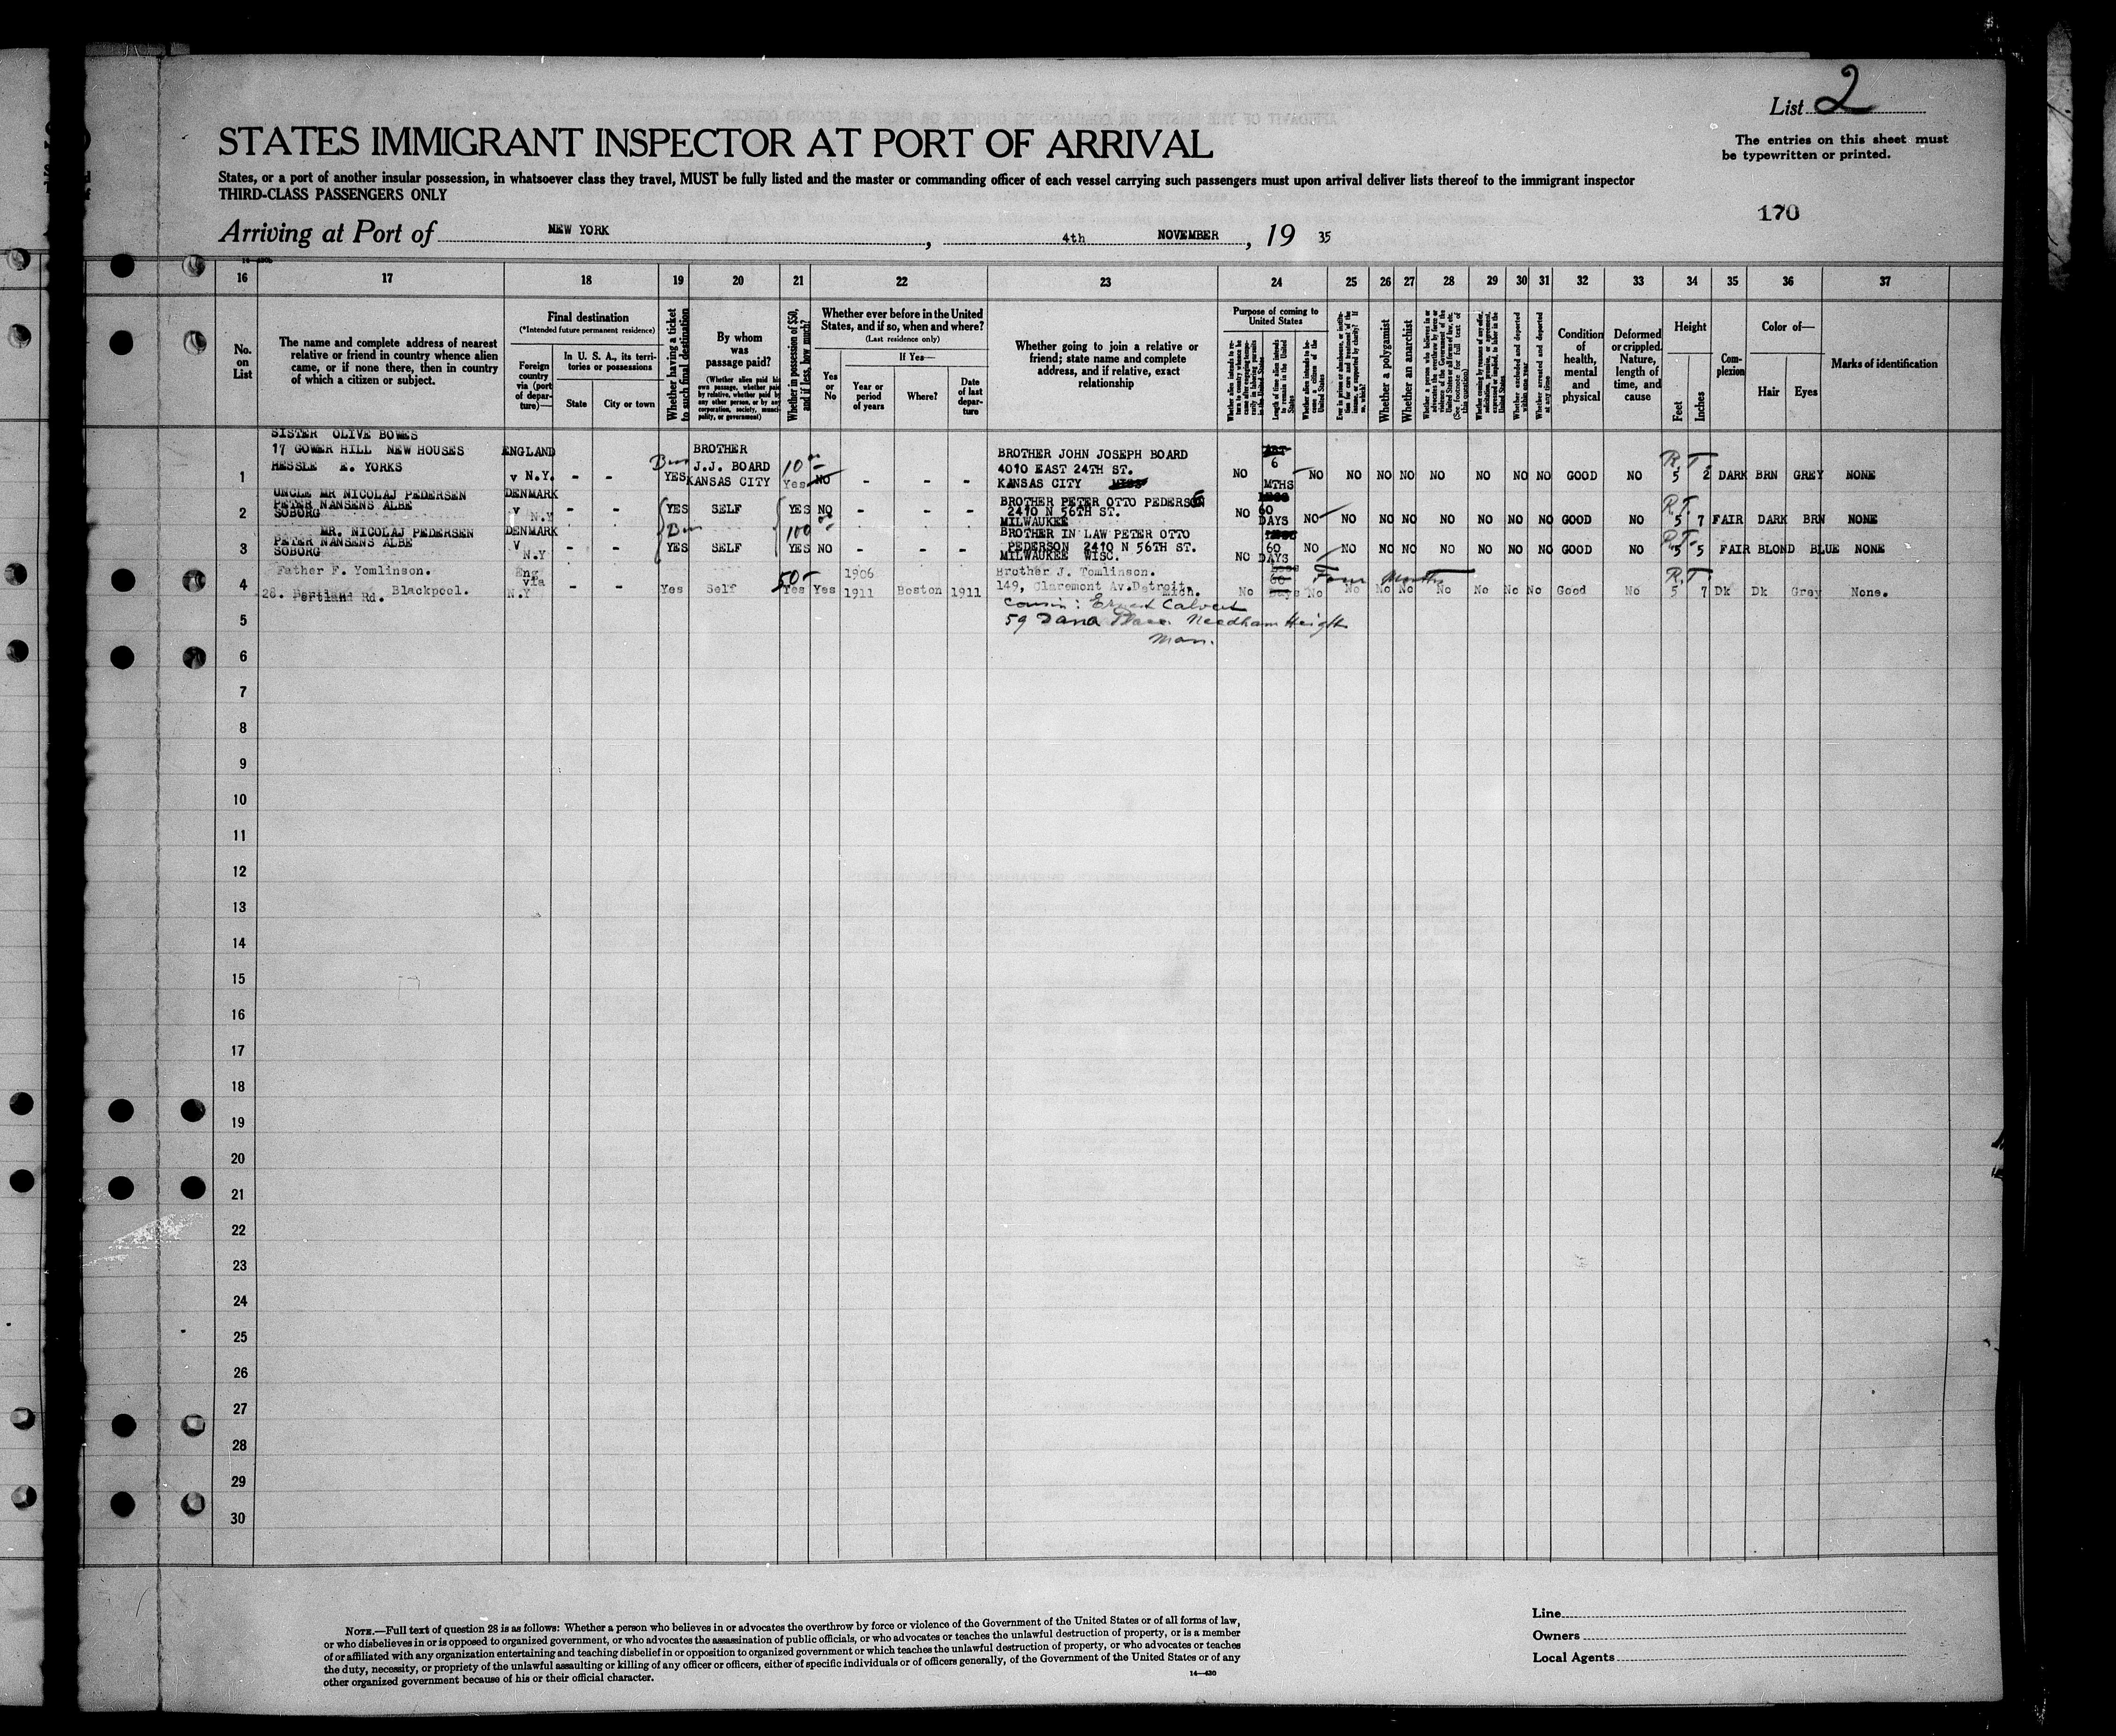 List 2
The entries on this sheet must
be typewritten or printed.
STATES IMMIGRANT INSPECTOR AT PORT OF ARRIVAL
States, or a port of another insular possession, in whatsoever class they travel, MUST be fully listed and the master or commanding officer of each vessel carrying such passengers must upon arrival deliver lists thereof to the immigrant inspector
THIRD-CLASS PASSENGERS ONLY
170
Arriving at Port of NEW YORK, 4th NOVEMBER, 19 35
16 17 18 19 20 21 22 23 24 25 26 27 28 29 30 31 32 33 34 35 36 37
No. on List
The name and complete address of nearest
relative or friend in country whence alien
came, or if none there, then in country
of which a citizen or subject.
Final destination
(*Intended future permanent residence)
Foreign country via (port of departure)—
In U. S. A., its territories or possessions
State
City or town
Whether having a ticket to such final destination
By whom was passage paid?
(Whether alien paid his own passage, whether paid by relative, whether paid by any other person, or by any corporation, society, municipality, or government)
Whether in possession of $50, and if less, how much?
Whether ever before in the United States, and if so, when and where?
(Last residence only)
Yes or No
If Yes—
Year or period of years
Where?
Date of last departure
Whether going to join a relative or
friend; state name and complete
address, and if relative, exact
relationship
Purpose of coming to United States
Length of time alien intends to remain in the United States
Whether alien intends to become a citizen of the United States
Whether a polygamist
Whether an anarchist
Whether excluded and deported within one year
Whether arrested and deported at any time
Condition of health, mental and physical
Deformed or crippled. Nature, length of time, and cause
Height
Feet
Inches
Complexion
Color of—
Hair
Eyes
Marks of identification
SISTER OLIVE BOWES
17 GOWER HILL NEW HOUSES ENGLAND BROTHER BROTHER JOHN JOSEPH BOARD
HESSLE E. YORKS J.J. BOARD 10 4010 EAST 24TH ST. 6 R.T.
1 v N.Y. - - YES KANSAS CITY Yes NO - - - KANSAS CITY NO MTHS NO NO NO NO NO NO NO NO GOOD NO 5 2 DARK BRN GREY NONE
UNCLE MR NICOLAJ PEDERSEN DENMARK BROTHER PETER OTTO PEDERSEN
PETER NANSENS ALBE v 2410 N 56TH ST. 60 R.T.
2 SOBORG N.Y - - YES SELF YES NO MILWAUKEE NO DAYS NO NO NO NO NO NO NO NO GOOD NO 5 7 FAIR DARK BRN NONE
MR. NICOLAJ PEDERSEN DENMARK 100 BROTHER IN LAW PETER OTTO
PETER NANSENS ALBE v PEDERSON 2410 N 56TH ST. 60 R.T.
3 SOBORG N.Y - - YES SELF YES NO - - - MILWAUKEE WISC. NO DAYS NO NO NO NO NO NO NO NO GOOD NO 5 5 FAIR BLOND BLUE NONE
Father F. Tomlinson. Eng 1906 Brother J. Tomlinson. Four Months R.T.
4 28. Portland Rd. Blackpool. via N.Y - - Yes Self 50 Yes Yes 1911 Boston 1911 149, Claremont Av. Detroit, Mich. No 60 Days No No No No No No No No Good No 5 7 Dk Dk Grey None.
Cousin: Ernest Calvert
5 59 Dana Place. Needham Heights
Mass.
6
7
8
9
10
11
12
13
14
15
16
17
18
19
20
21
22
23
24
25
26
27
28
29
30
NOTE.—Full text of question 28 is as follows: Whether a person who believes in or advocates the overthrow by force or violence of the Government of the United States or of all forms of law,
or who disbelieves in or is opposed to organized government, or who advocates the assassination of public officials, or who advocates or teaches the unlawful destruction of property, or is a member
of or affiliated with any organization entertaining and teaching disbelief in or opposition to organized government or which teaches the unlawful destruction of property, or who advocates or teaches
the duty, necessity, or propriety of the unlawful assaulting or killing of any officer or officers, either of specific individuals or of officers generally, of the Government of the United States or of any
other organized government because of his or their official character.
14—430
Line
Owners
Local Agents